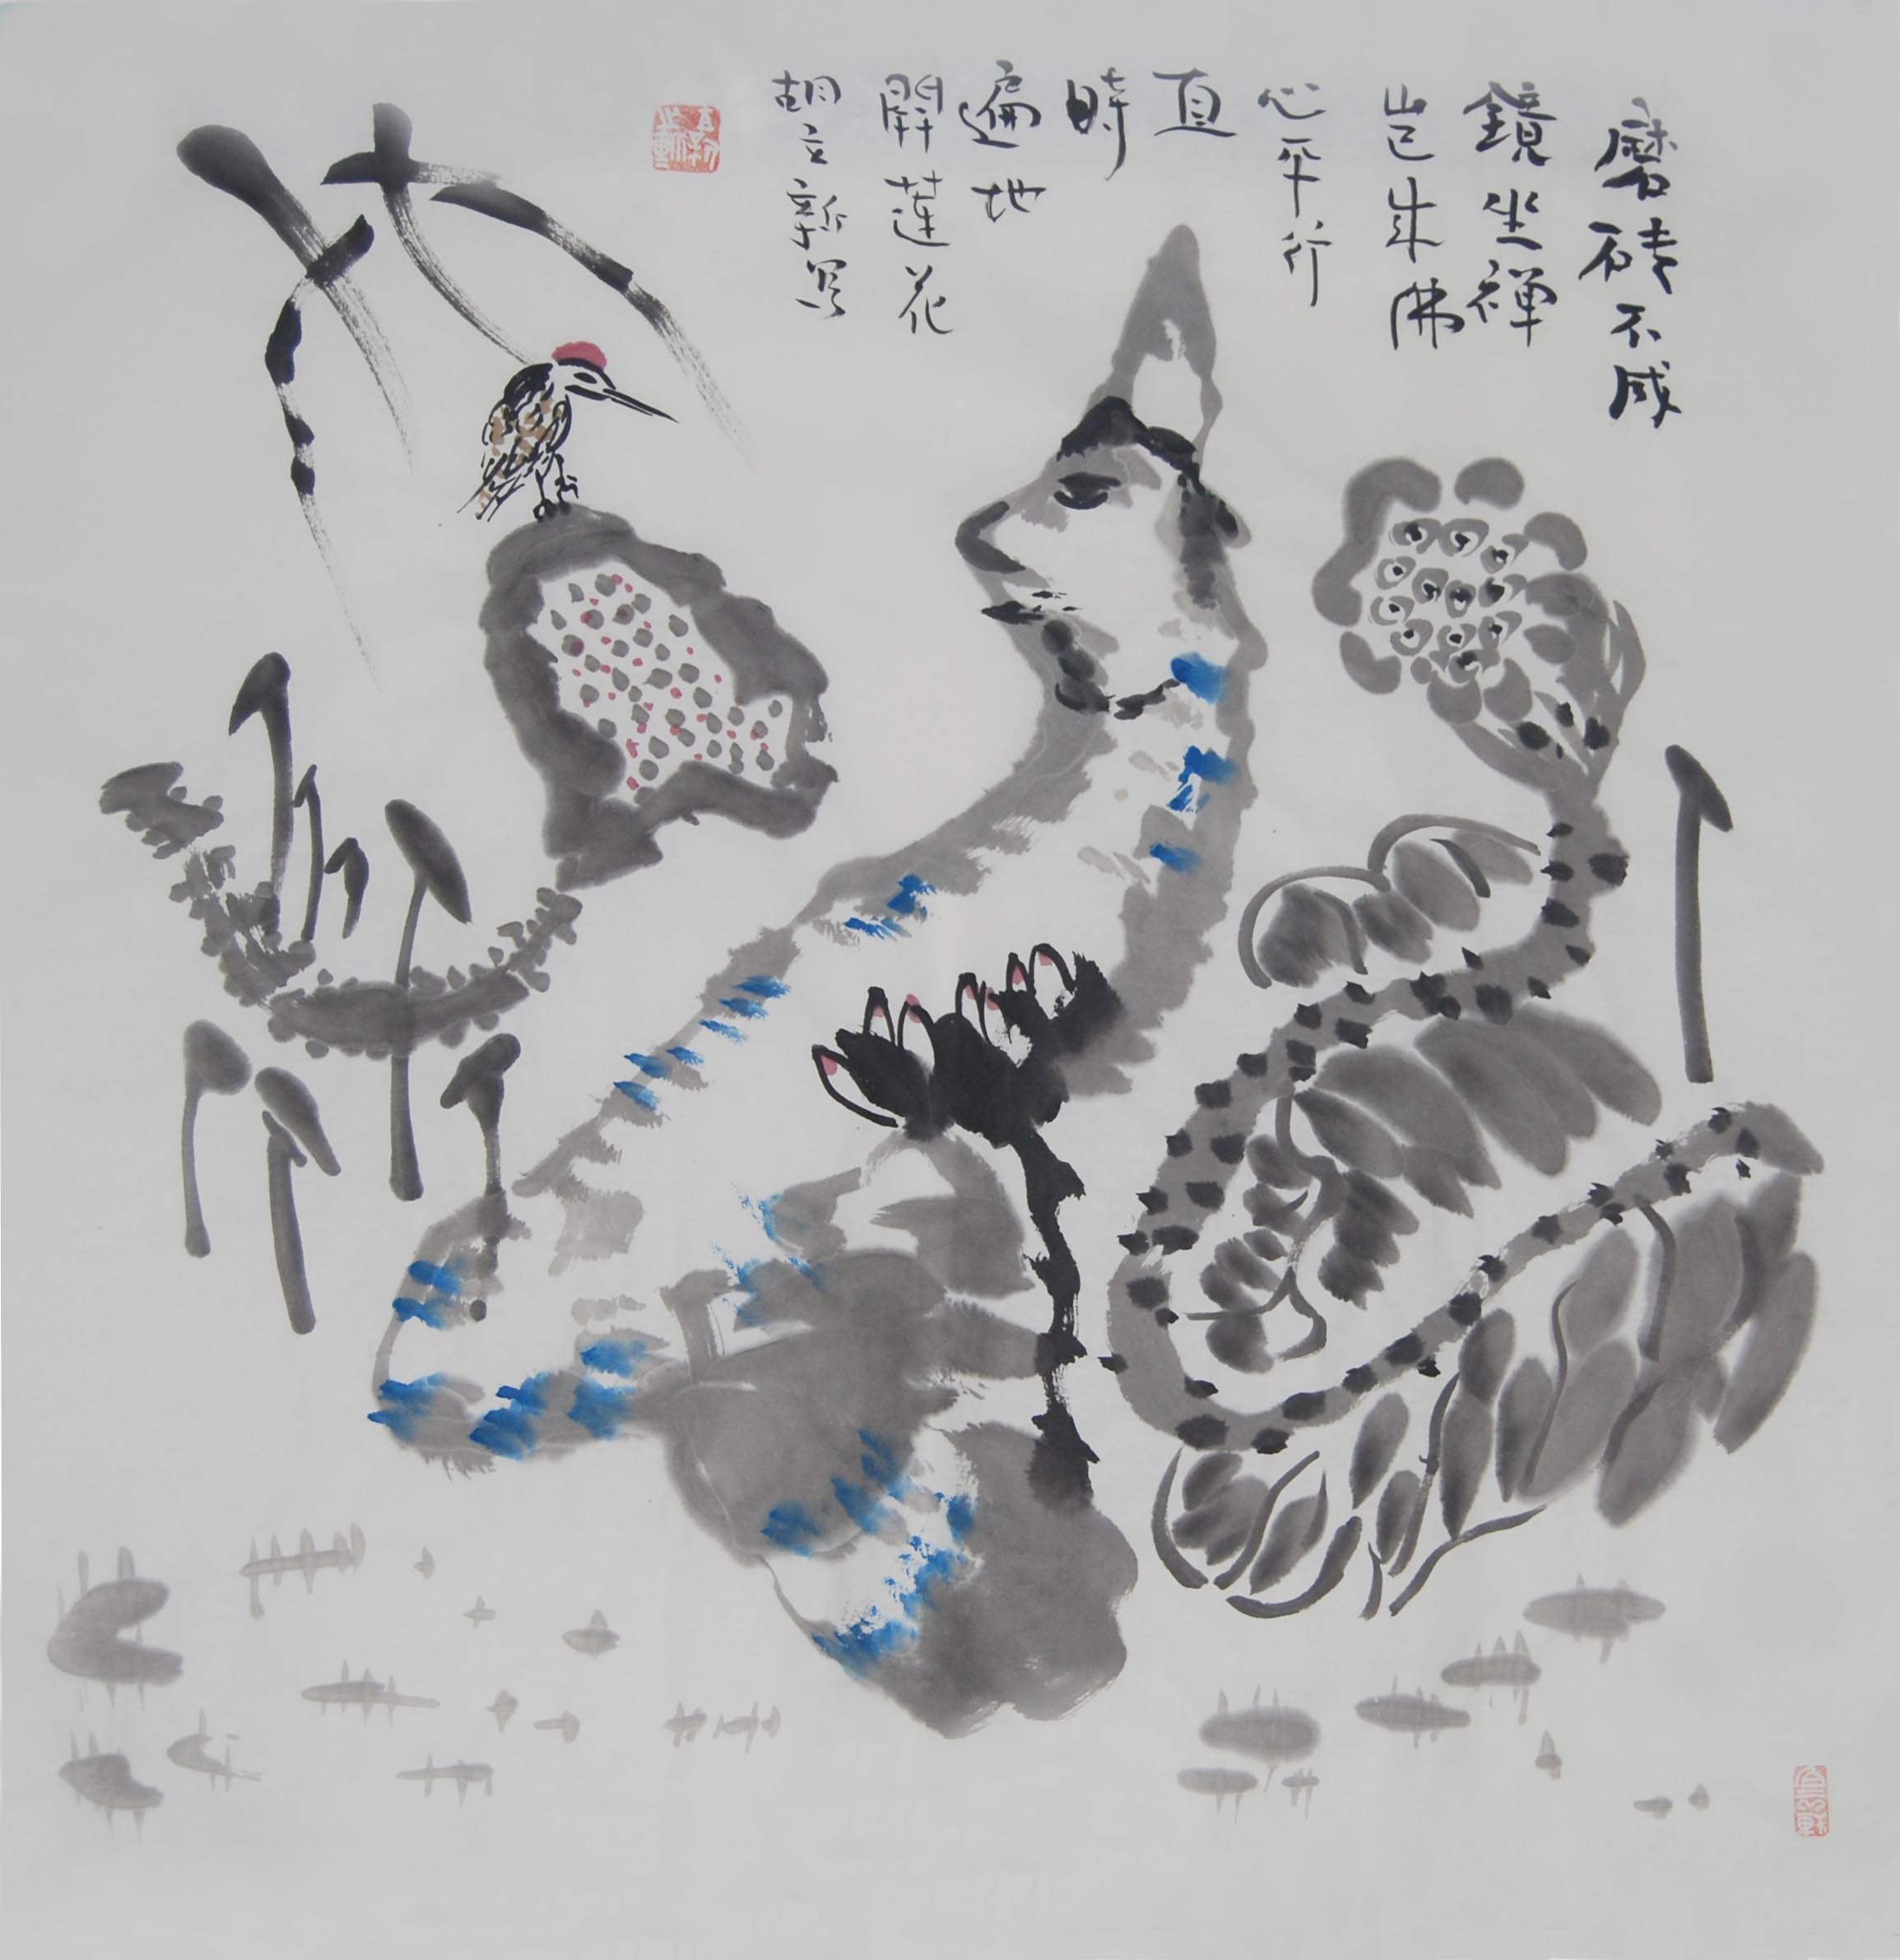 磨砖不成
鏡坐禅
岂成佛
心平行
直
時
遍地
開莲花
胡立新写